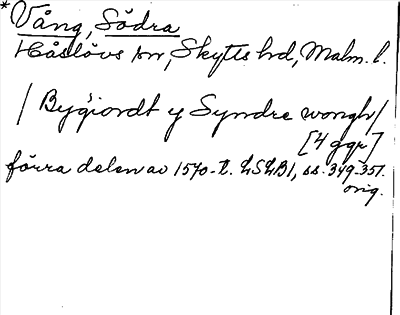 * Vång, Södra
Håslövs sn, Skytts hd, Malm. l.
/ Bygiordt y Syndre wongh /
[4 ggr]
förra delen av 1570-t. LSLB1, ss. 349-351.
orig.